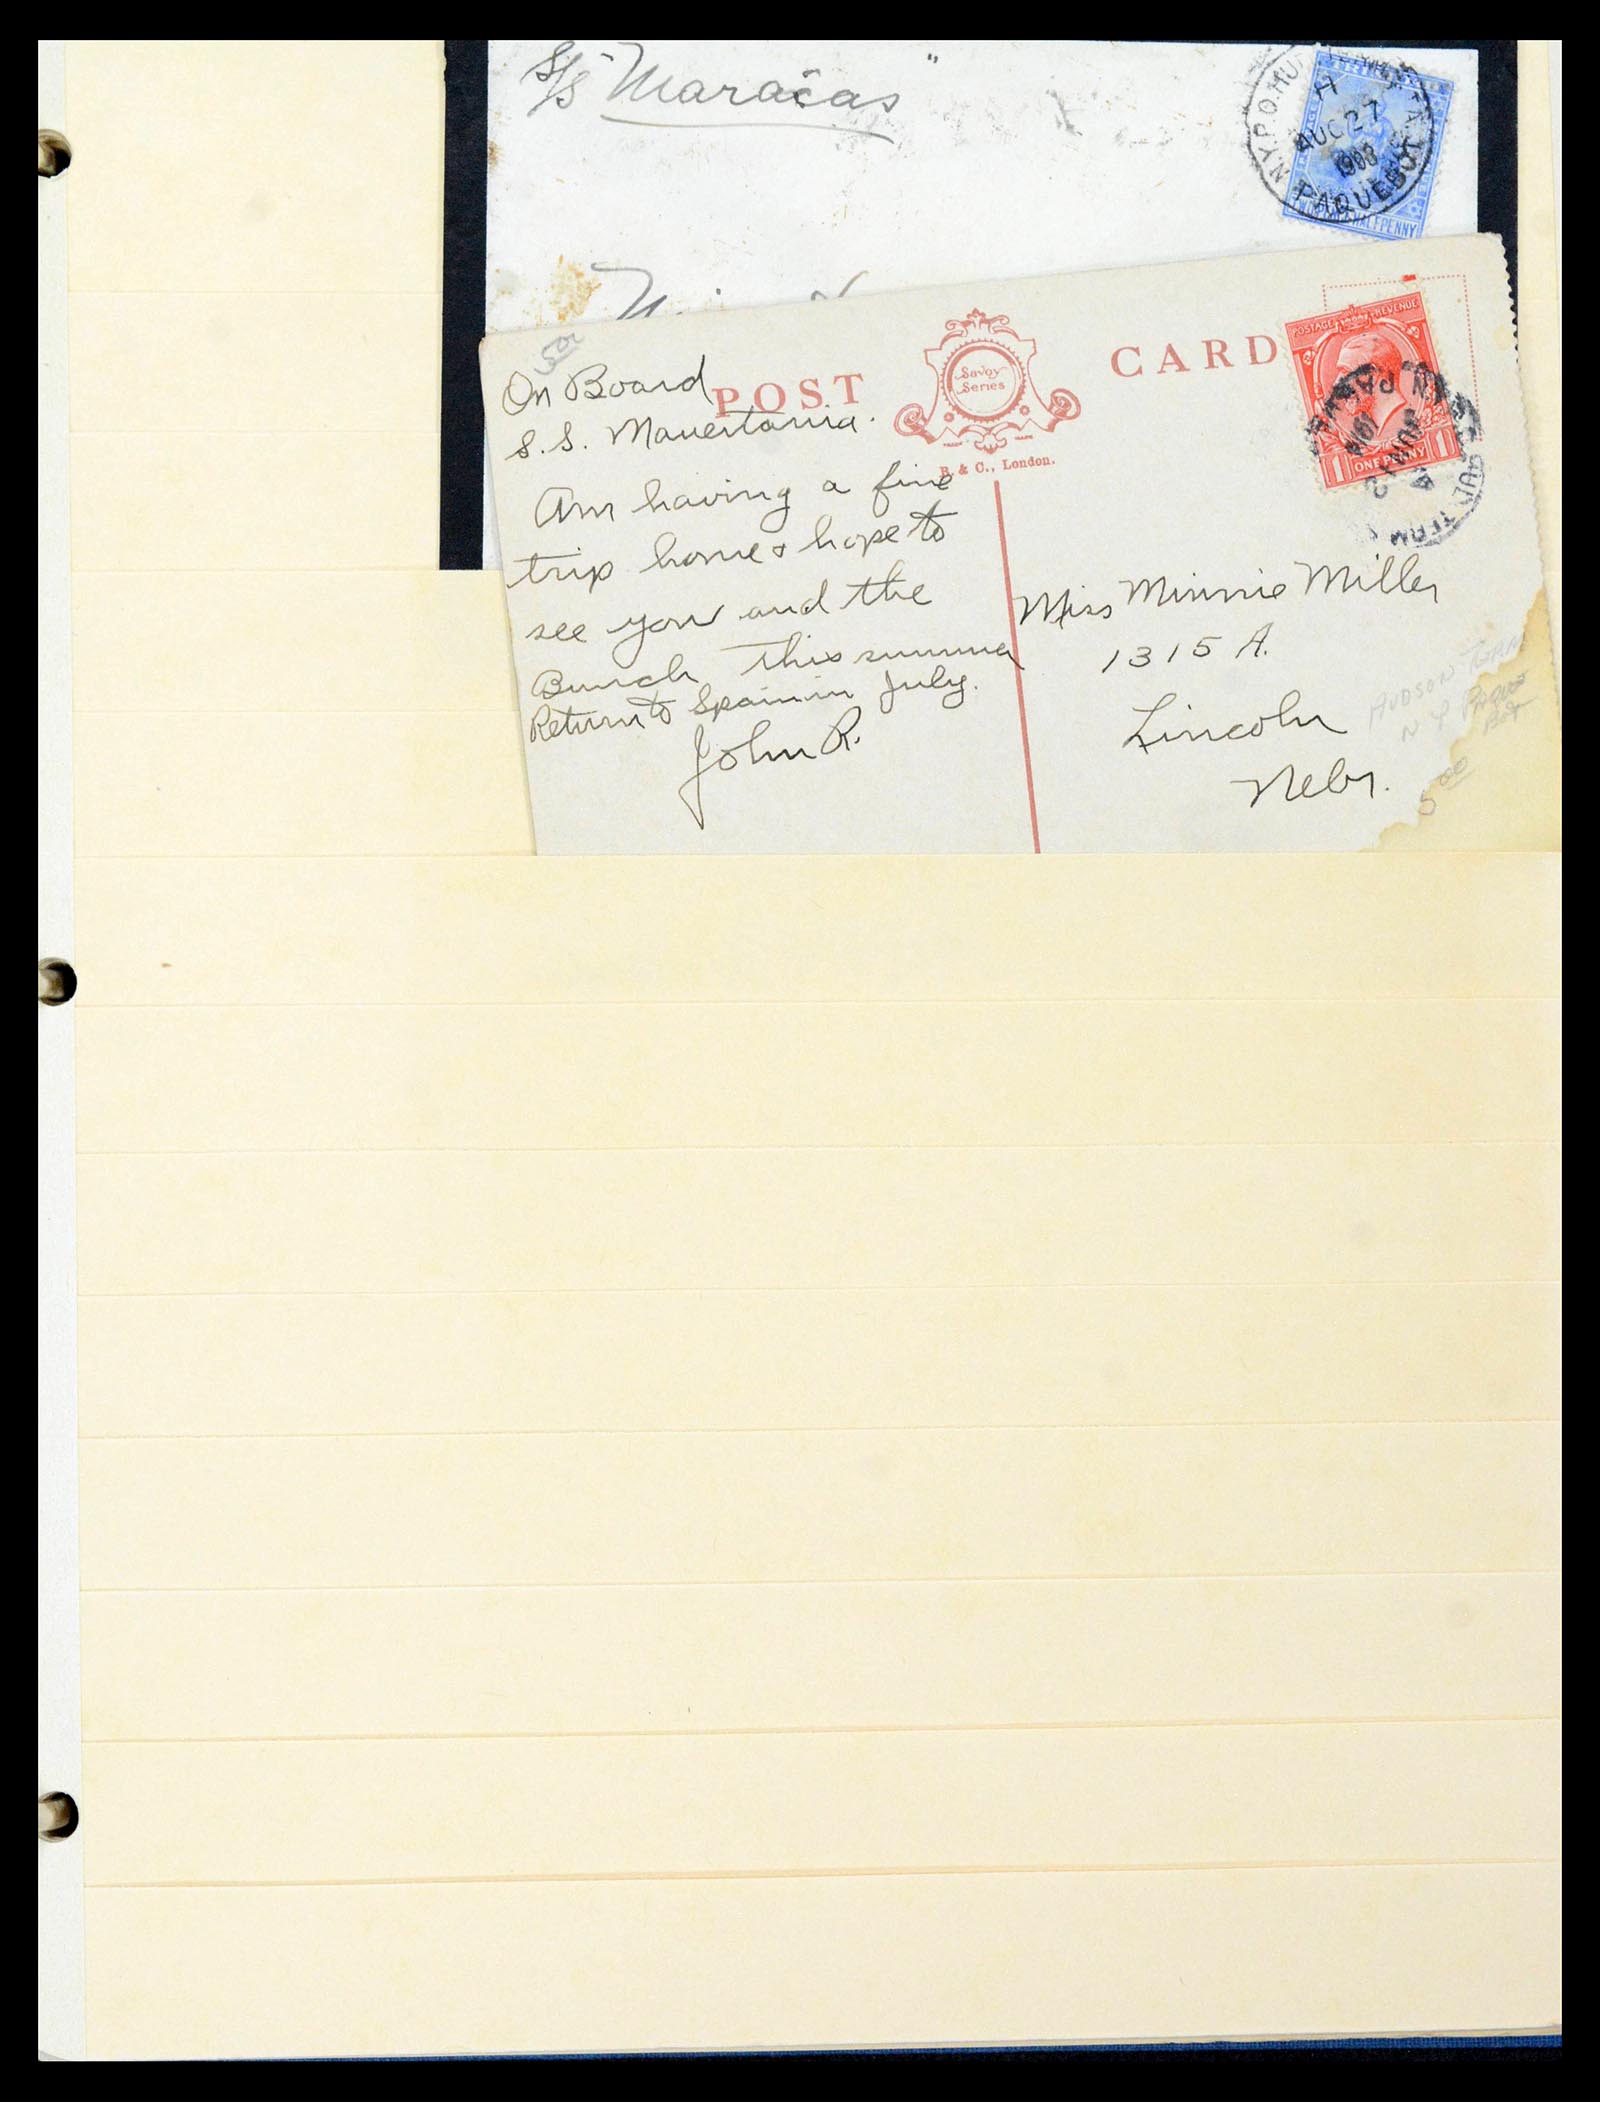 S/S "Maracas"
N.Y.P.O. HUD. TERM. STA.
H
AUG 27
1908
PAQUEBOT
TRINIDAD
HALFPENNY
POST CARD
Savoy
Series
B. & C., London.
POSTAGE REVENUE
1 ONE PENNY 1
On Board
S. S. Mauertania.
Am having a fine
trip home & hope to
see you and the
Bunch this summer
Return to Spain in July.
John R.
Miss Minnie Miller
1315 A.
Lincoln
Nebr.
HUDSON TERM
N Y PAQUE
BOT
5 00